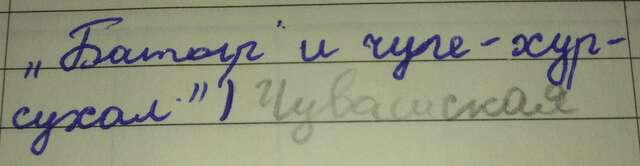 „Батыр" и чуге-хур-
сухал") Чувашская